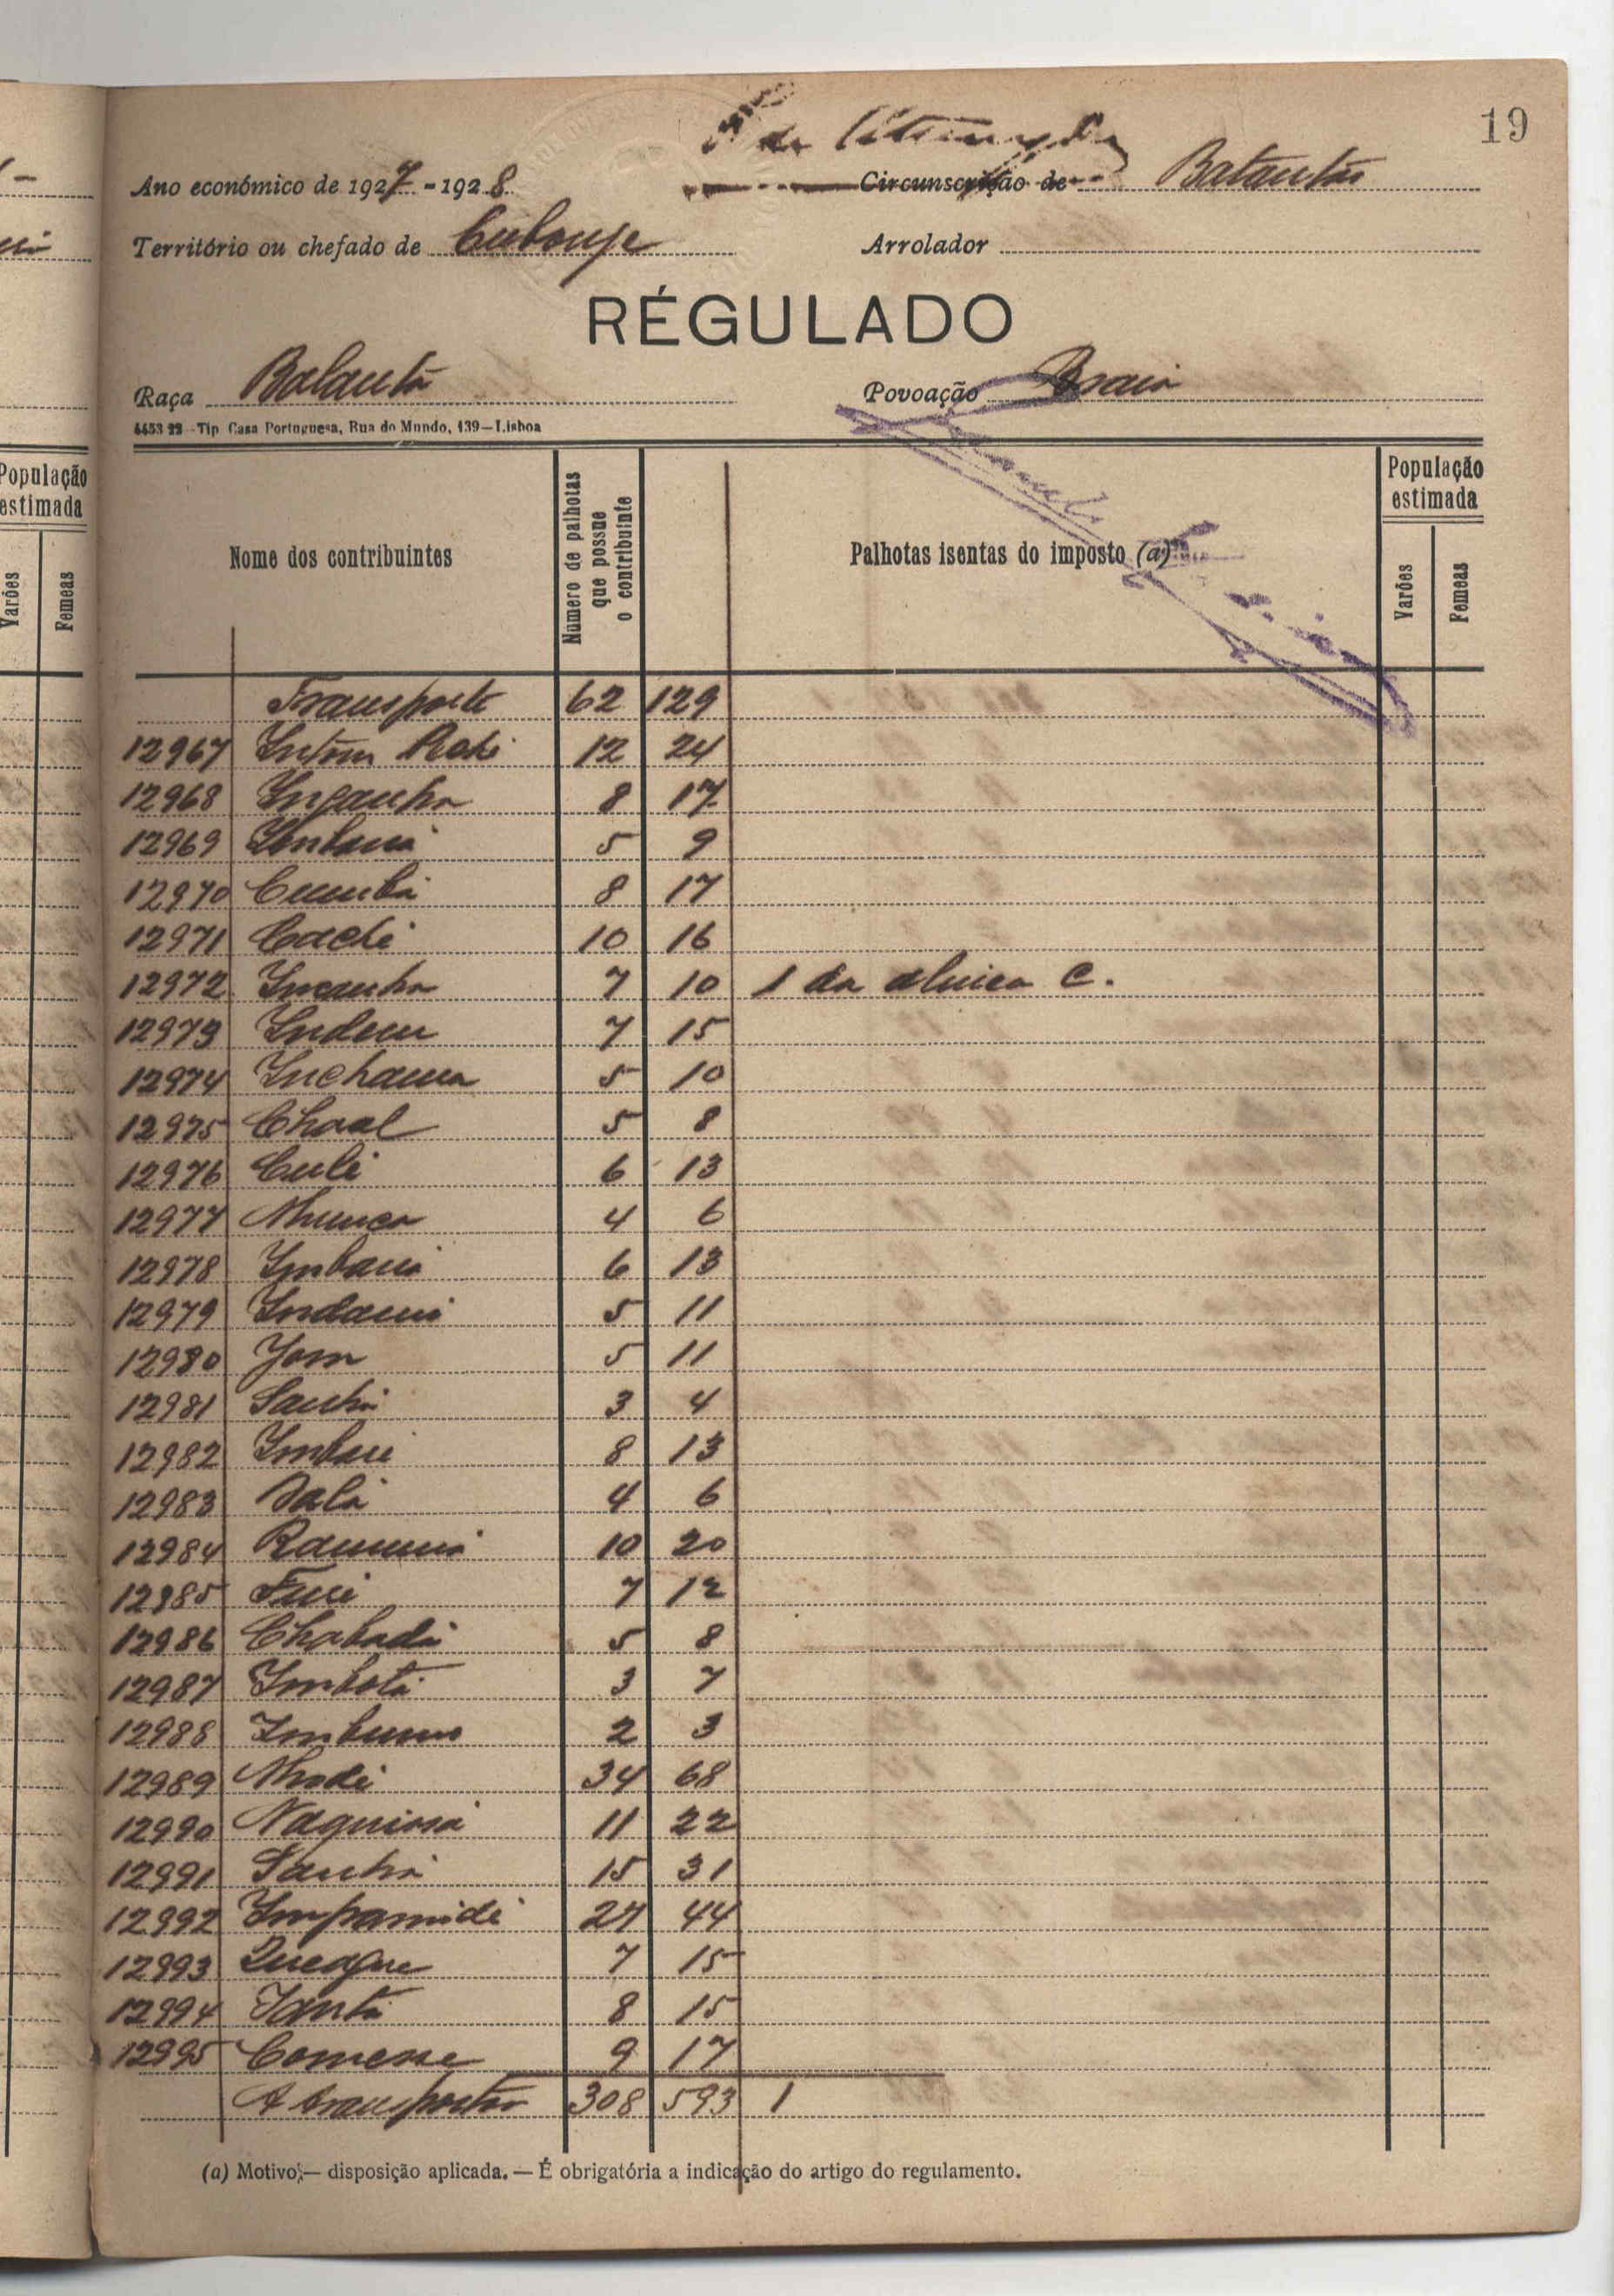 19
Ano económico de 1927 - 1928
Circunscrição de Balantas
Território ou chefado de Cubonje
Arrolador
RÉGULADO
Raça Balanta
Povoação Braia
4453 22 - Tip Casa Portuguesa, Rua do Mundo, 139—Lisboa
População estimada
Varões
Femeas
Nome dos contribuintes
Número de palhotas que possue o contribuinte
Palhotas isentas do imposto (a)
População estimada
Varões
Femeas
Transporte 62 129
12967 Intom Rati 12 24
12968 Incanha 8 17
12969 Imbana 5 9
12970 Cumba 8 17
12971 Cachi 10 16
12972 Incanha 7 10 1 da alinea C.
12973 Indem 7 15
12974 Inchama 5 10
12975 Chaal 5 8
12976 Culi 6 13
12977 Nhunca 4 6
12978 Imbana 6 13
12979 Indami 5 11
12980 Yom 5 11
12981 Sanhá 3 4
12982 Imbai 8 13
12983 Dalá 4 6
12984 Ramuná 10 20
12985 Furi 7 12
12986 Chabadá 5 8
12987 Imbotá 3 7
12988 Imbuns 2 3
12989 Nhodi 34 68
12990 Naquiassá 11 22
12991 Sanhá 15 31
12992 Impamidi 27 44
12993 Quedgue 7 15
12994 Iantá 8 15
12995 Comesse 9 17
A transportar 308 593 1
(a) Motivo;— disposição aplicada. — É obrigatória a indicação do artigo do regulamento.